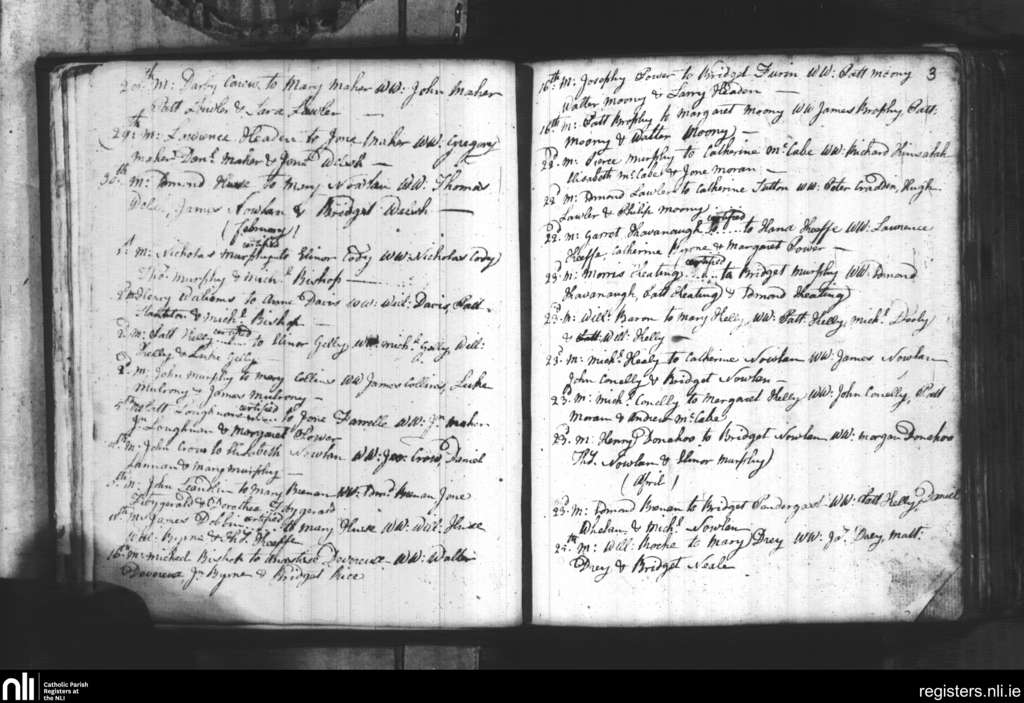 20th M: Darby Cowen to Mary Maher WW: John Maher
Patt Lawler & Sara Lawler
29th: M: Lawrence Headen to Jone Maher WW: Gregory
Maher Danl. Maher & Jone Welsh
30th M: Edmond House to Mary Nowlan WW: Thomas
James Nowlan & Bridget Welsh
(February)
certified
1st: M: Nicholas Murphy to Elinor Cody WW: Nicholas Cody
Thos. Murphy & Michl. Bishop
2nd Pierry Waliams to Anne Davis WW: Will: Davis, Patt
Stanton & Michl. Bishop
certified
2d. M: Patt Kelly to Elinor Gelly Michl. Gelly, Will:
Kelly & Luke Gelly
2d. M: John Murphy to Mary Collins WW James Collins, Luke
Mulrony & James Mulrony
certified
5th M: Patt Loughnan to Jone Darrelle WW: Jn. Maher
Jn. Loughnan & Margaret Power
M: John Crow to Elisabeth Nowlan WW: Crow, Daniel
Lannan & Mary Murphy
M: John Scanlin to Mary Brenan WW: Edmd. Brenan Jone
Fitzgerald & Dorothea Fitzgerald
certified
M: James Dobbin to Mary House WW: Will: House
Byrne & Keeffe
16th M: Micheel Bishop to Anastace Devoreux WW: Walter
Devoreux Jn. Byrne & Bridget Rice
3
16th M: Josephy Power to Bridget Furin WW: Patt Moony
Walter Moony & Larry Headen
16th M: Patt Brophy to Margaret Moony WW James Brophy Patt
Moony & Walter Moony
22d. M: Pierce Murphy to Catherine McCabe WW: Richard Hinsalah
Elisabeth McCabe & Jone Moran
22d M: Edmond Lawler to Catherine Sutton WW: Peter Gradden, Hugh
Lawler & Philip Moony
certified
22d. M: Garret Kavanaugh to Hana Keeffe WW: Lawrence
Keeffe, Catherine & Margaret Power
certified
23d. M: Morris Keating to Bridget Murphy WW: Edmond
Kavanaugh, Patt Keating & Edmond Keating
23d. M: Willm. Baron to Mary Kelly, WW: Patt Kelly, Michl. Dooly
& Will: Kelly
23d. M: Michl. Healy to Catherine Nowlan WW: James Nowlan
John Conelly & Bridget Nowlan
23d. M: Michl. Conelly to Margaret Kelly WW: John Conelly, Patt
Moran & Andrew McCabe
23d. M: Henry Donahoo to Bridget Nowlan WW: Morgan Donahoo
Ths. Nowlan & Elinor Murphy
(April)
23d. M: Edmond Brenan to Bridget Pandergass WW: Patt Kelly, Daniel
Whelan & Michl. Nowlan
24th M: Will: Roche to Mary Drey WW: Js. Drey Matt.
Drey & Bridget Neale
nli
Catholic Parish
Registers at
the NLI
registers.nli.ie